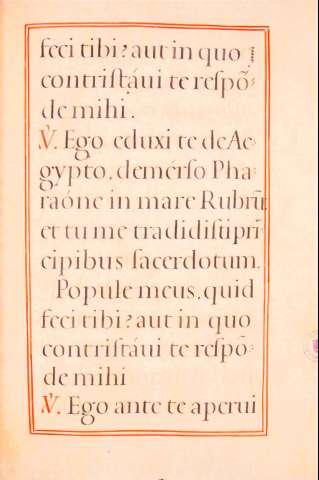 feci tibi? aut in quo
contristáui te respõ-
de mihi.
℣. Ego eduxi te de Ae-
gypto, demérso Pha-
raóne in mare Rubrũ
et tu me tradidisti pri̅
cipibus sacerdotum.
Popule meus, quid
feci tibi? aut in quo
contristáui te respõ-
de mihi
℣. Ego ante te aperui